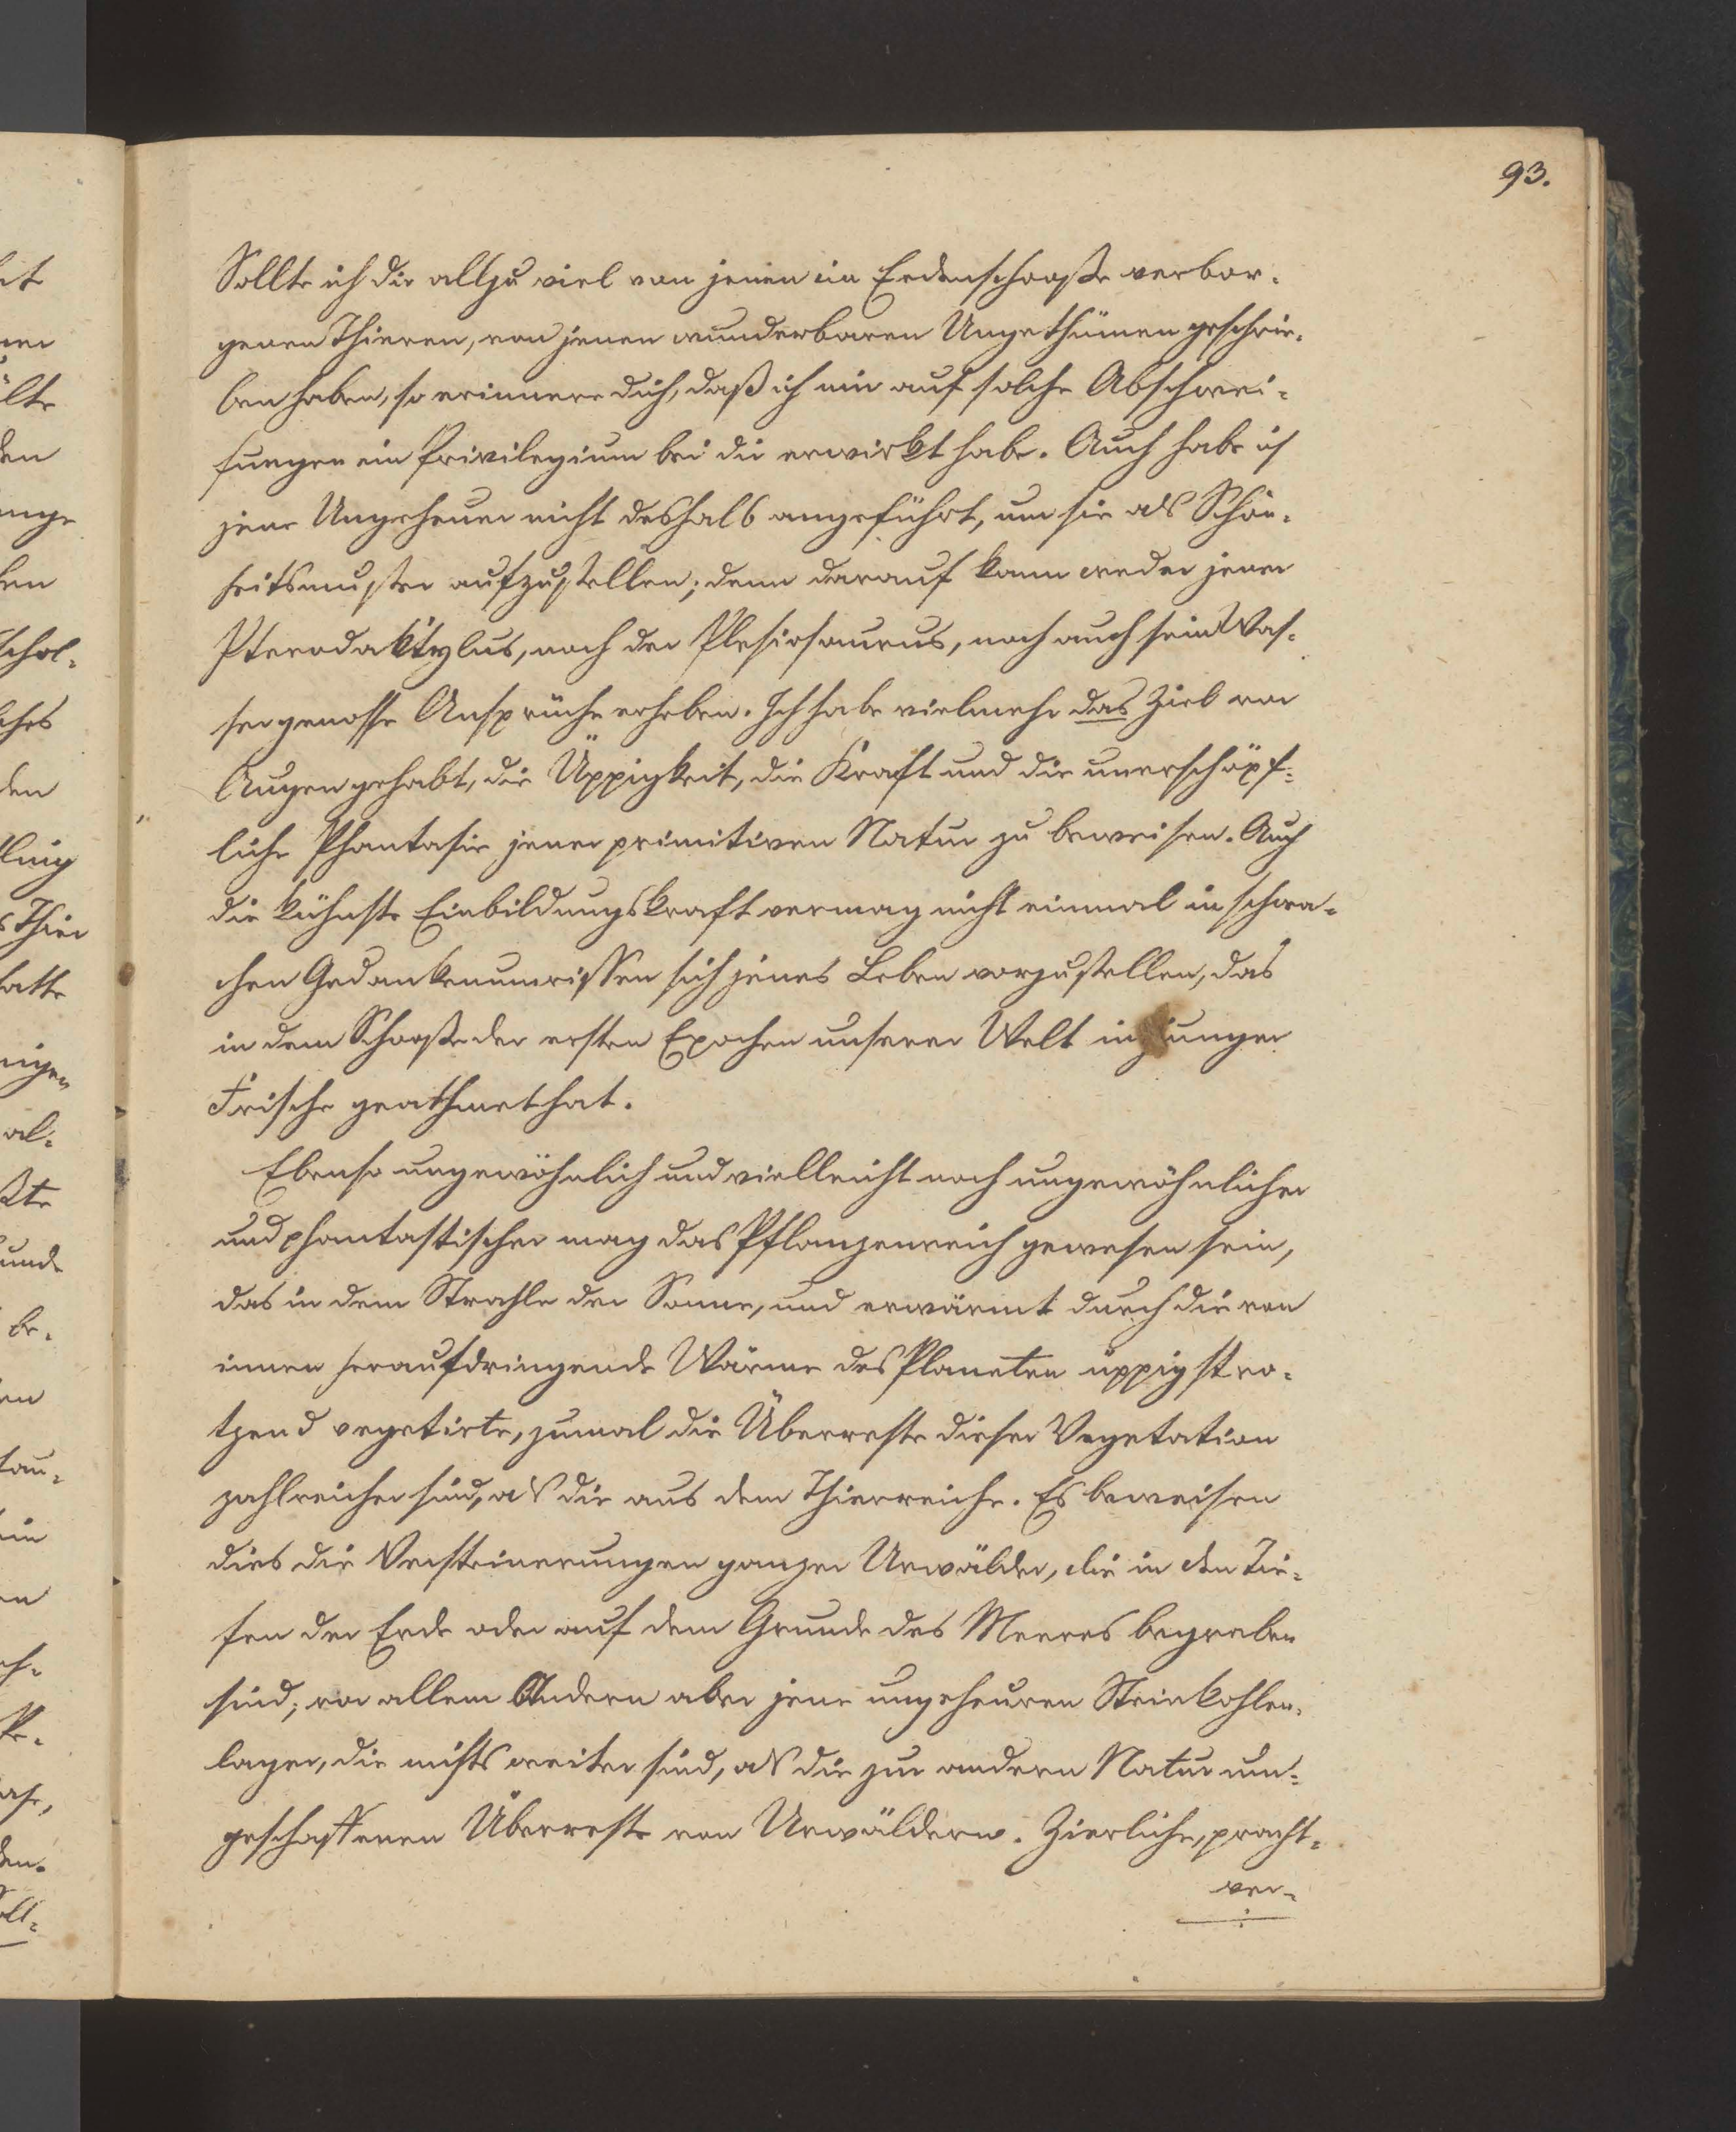 93.
Sollte ich dir allzu viel von jenen im Erdenschooße verbor-
genen Thieren, von jenen wunderbaren Ungethümen geschrie-
ben haben, so erinnere dich, daß ich mir auf solche Abschwei-
fungen ein Privilegium bei dir erwirkt habe. Auch habe ich
jene Ungeheuer nicht deshalb angeführt, um sie als Schön-
heitsmuster aufzustellen; denn darauf kann weder jener
Pterodaktylus, noch der Plesiosaurus, noch auch sein Was-
sergenosse Ansprüche erheben. Ich habe vielmehr das Ziel vor
Augen gehabt, die Üppigkeit, die Kraft und die unerschöpf-
liche Phantasie jener primitiven Natur zu beweisen. Auch
die kühnste Einbildungskraft vermag nicht einmal in schwa-
chen Gedankenumrissen sich jenes Leben vorzustellen, das
in dem Schooße der ersten Epochen unserer Welt in junger
Frische geathmet hat.
Ebenso ungewöhnlich und vielleicht noch ungewöhnlicher
und phantastischer mag das Pflanzenreich gewesen sein,
das in dem Strahle der Sonne, und erwärmt durch die von
innen heraufdringende Wärme des Planeten üppig stro-
tzend vegetirte, zumal die Überreste dieser Vegetation
zahlreicher sind, als die aus dem Thierreiche. Es beweisen
dies die Versteinerungen ganzer Urwälder, die in den Tie-
fen der Erde oder auf dem Grunde des Meeres begraben
sind; vor allem Andern aber jene ungeheuren Steinkohlen-
lager, die nichts weiter sind, als die zur andern Natur um-
geschaffenen Überreste von Urwäldern. Zierliche, pracht-
ver-